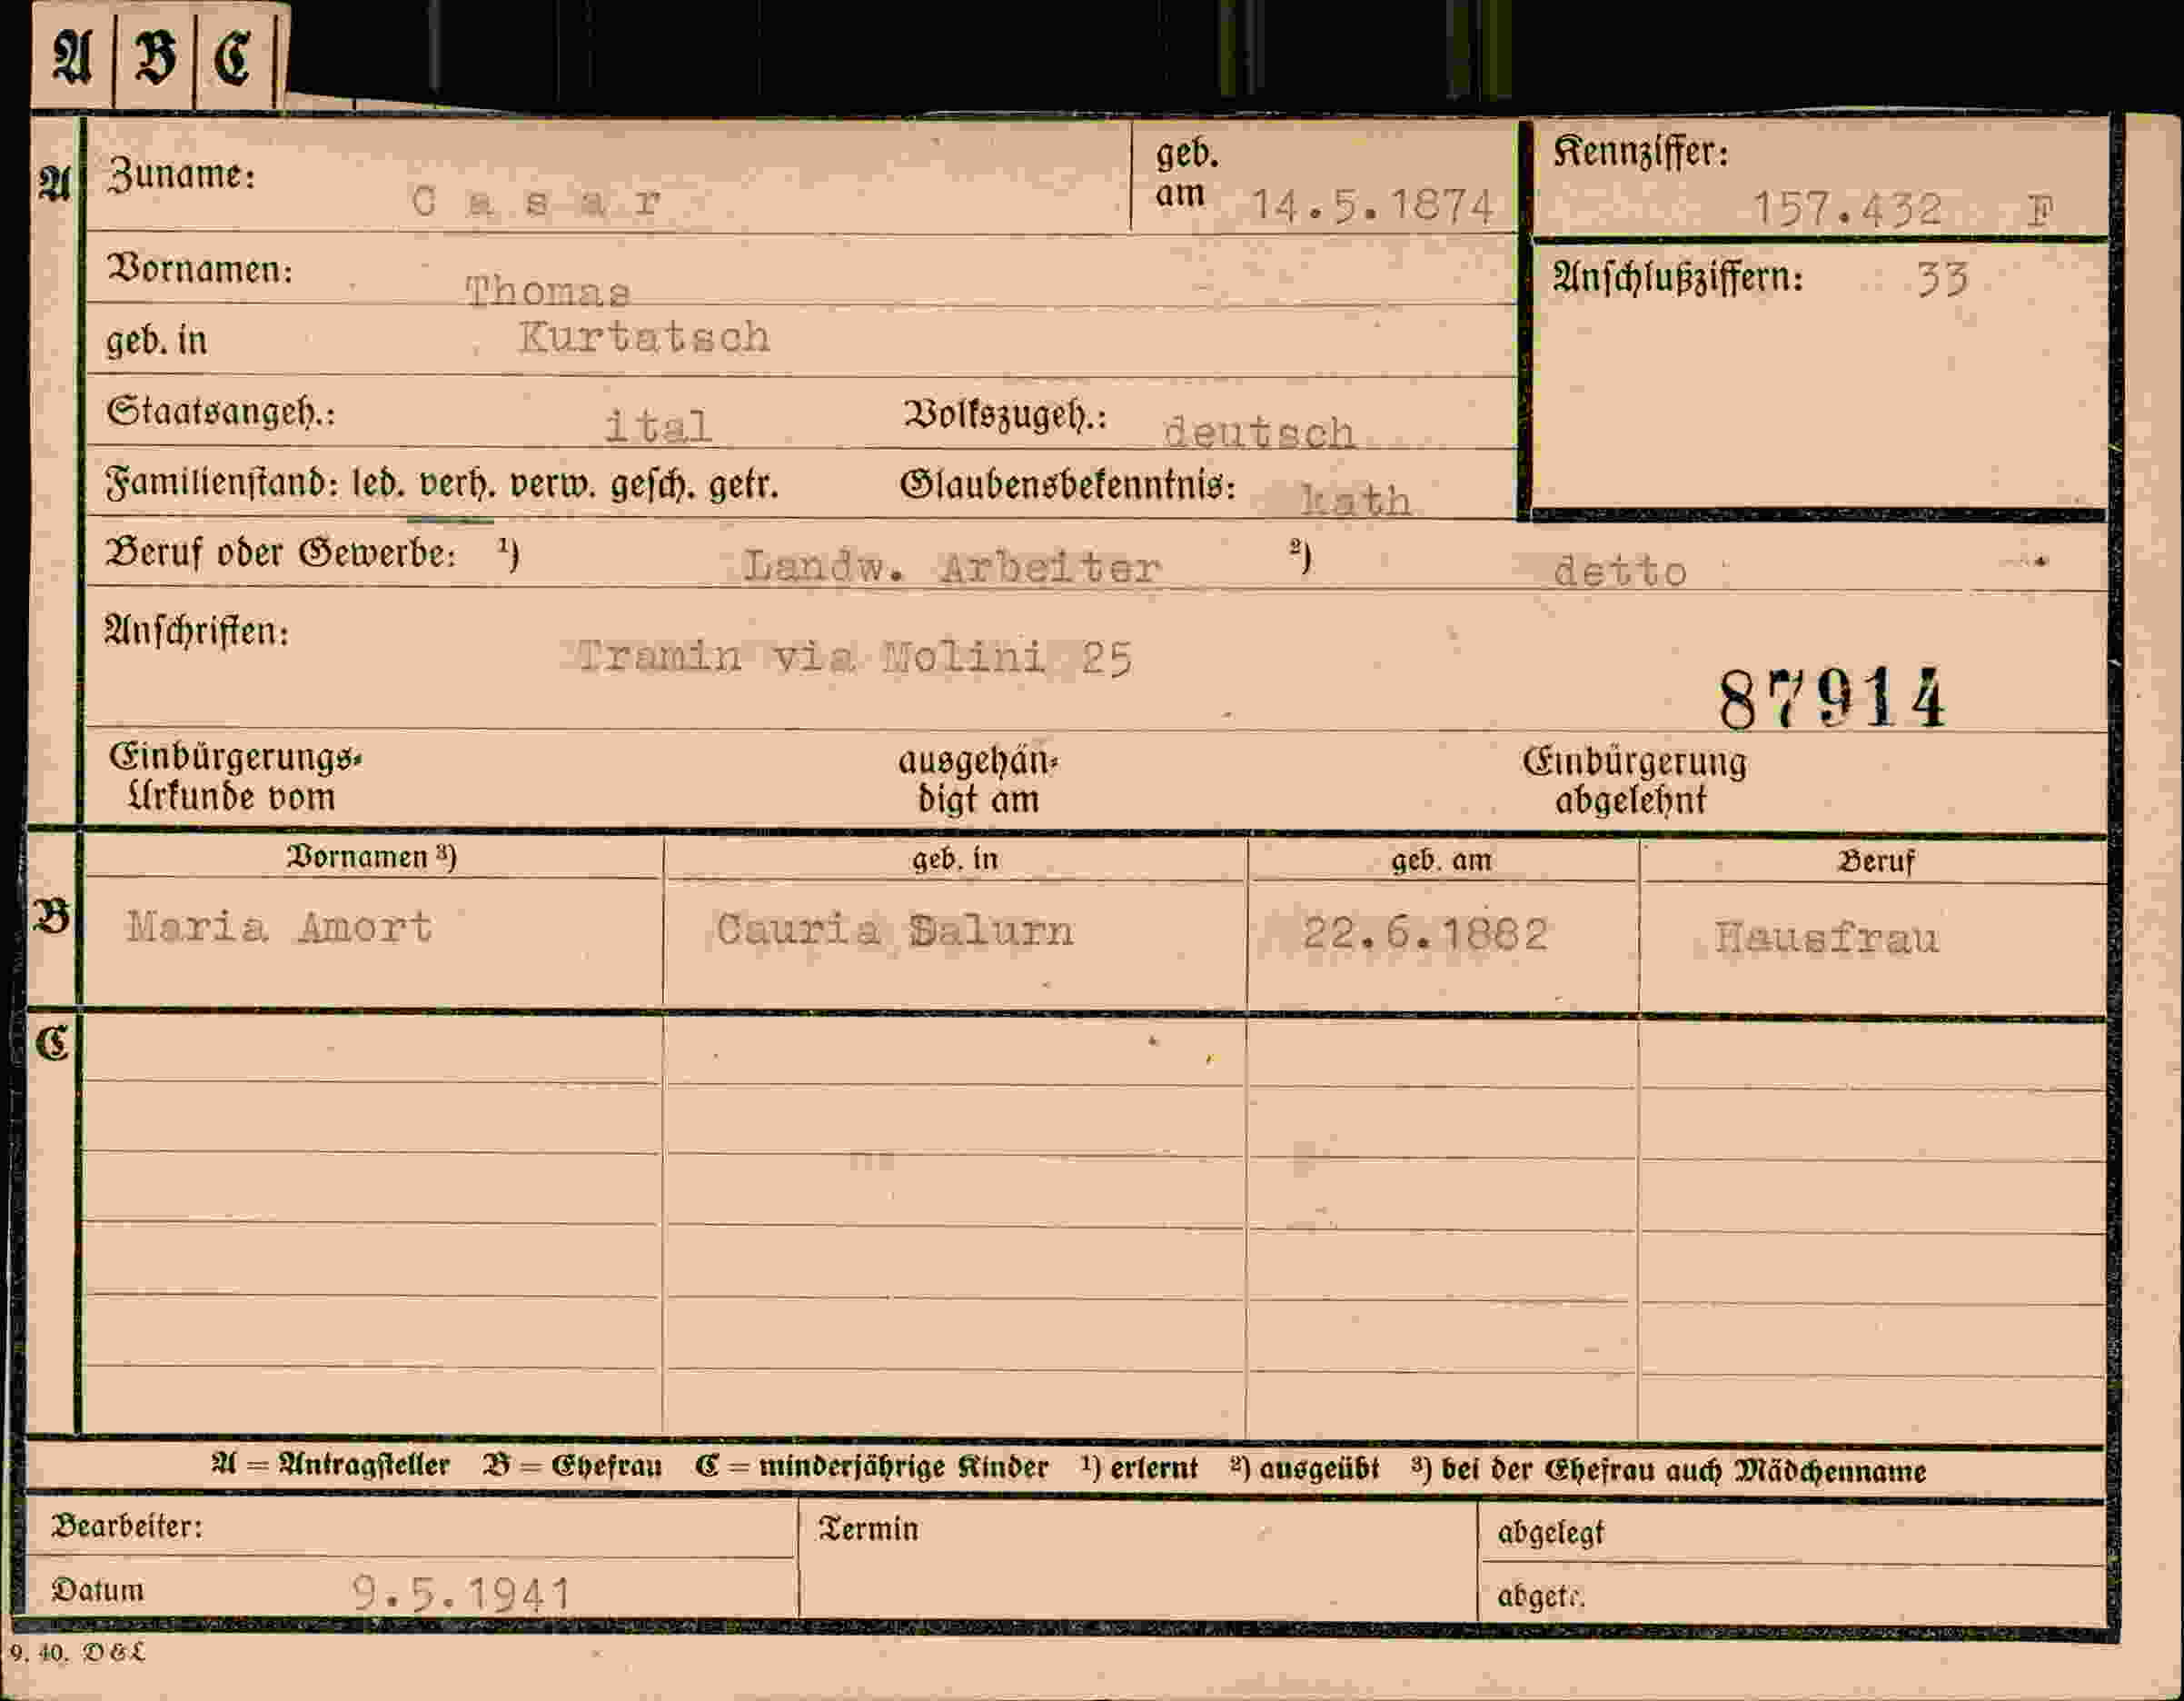 A B C
A Zuname: Casar geb. am 14.5.1874 Kennziffer: 157.432 F
Vornamen: Thomas Anschlußziffern: 33
geb. in Kurtatsch
Staatsangeh.: ital Volkszugeh.: deutsch
Familienstand: led. verh. verw. gesch. getr. Glaubensbekenntnis: kath
Beruf oder Gewerbe: ¹) Landw. Arbeiter ²) detto
Anschriften: Tramin via Molini 25
87914
Einbürgerungs-Urkunde vom ausgehändigt am Einbürgerung abgelehnt
Vornamen ³) geb. in geb. am Beruf
B Maria Amort Cauria Salurn 22.6.1882 Hausfrau
C
A = Antragsteller B = Ehefrau C = minderjährige Kinder ¹) erlernt ²) ausgeübt ³) bei der Ehefrau auch Mädchenname
Bearbeiter: Termin abgelegt
Datum 9.5.1941 abgetr.
9. 40. D&L